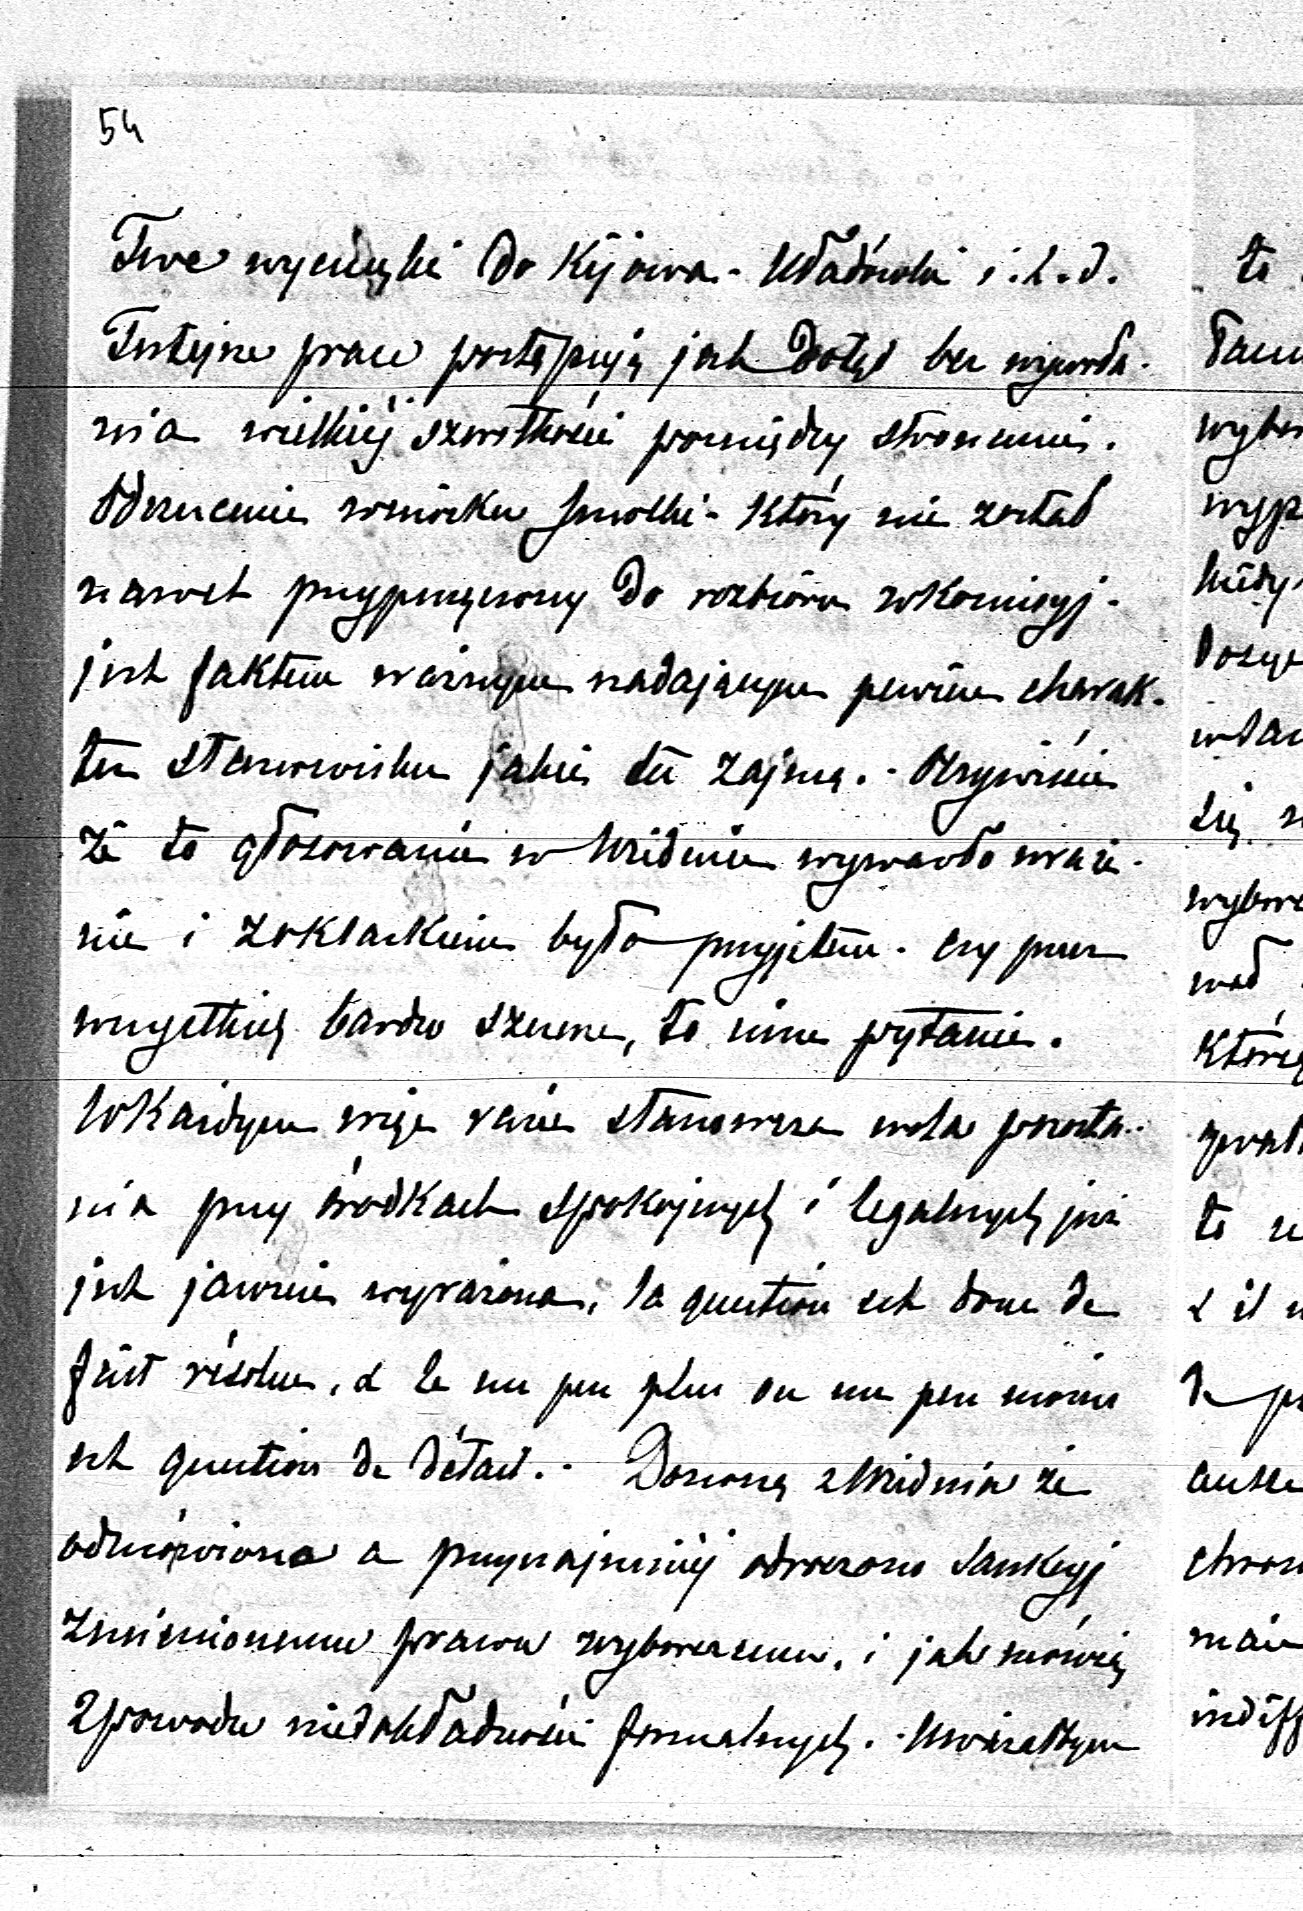 54
Twe wycieczki do Kijowa - Uładówki i.t.d.
Tutejsze prace postępują jak dotąd bez wywoła-
nia wielkiéj szorstkości pomiędzy stronami.
Odrzucenie wniosku Smolki - który nie został
nawet przypuszczony do rozbioru w Komisyj -
jest faktem ważnym nadającym pewien charak-
ter stanowisku jakie tu zajmą. - Oczywiście
że to głosowanie w Widniu wywarło wraże-
nie i z oklaskiem było przyjętem. czy przez
wszystkich bardzo szczere, to inne pytanie.
W Każdym więc razie stanowcza wola pozosta-
nia przy środkach spokojnych i legalnych już
jest jawnie wyrażona, la question est donc de
fait résolue, & le un peu plus ou un peu moins
est question de détail. - Donoszą z Widnia że
odmówiono a przynajmniéj odroczono Sankcyj
zmienionemu prawu wyborczemu, i jak mówią
z powodu niedokładności formalnych. - Uważałbym
to
wybor
kiedy
się
wybore
to
de
indiff